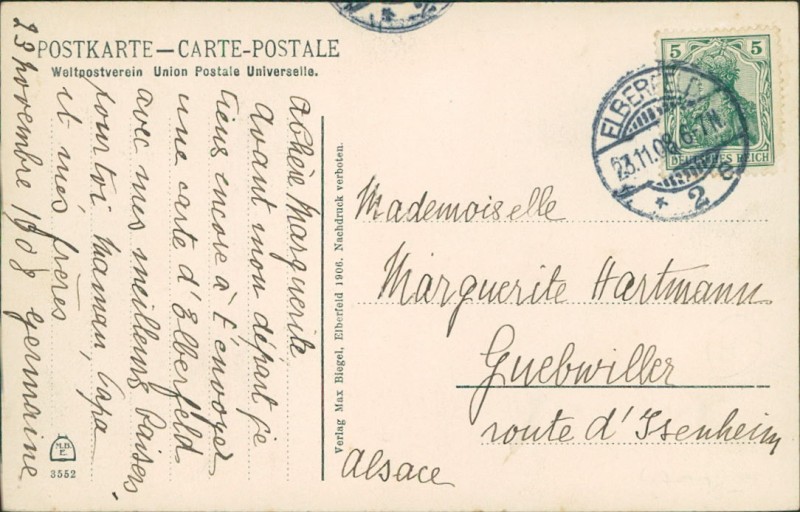 POSTKARTE — CARTE-POSTALE
Weltpostverein Union Postale Universelle.
5 5
DEUTSCHES REICH
ELBERFELD
23.11.08. 6-7 N.
* 2 e
* 2
Mademoiselle
Marguerite Hartmann
Guebwiller
route d'Isenheim
Alsace
Verlag Max Biegel, Elberfeld 1906. Nachdruck verboten.
Marguerite
avant mon départ je
tiens encore à t'envoyer
une carte d'Elberfeld
avec mes meilleurs baisers
pour toi, Maman, Papa
et mes frères
23 novembre 1908 Germaine
M.B.
E.
3552